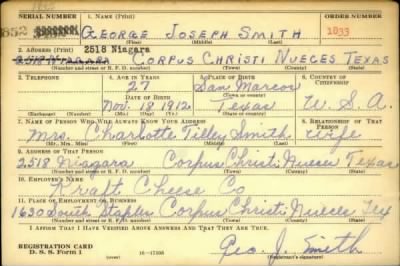 SERIAL NUMBER 1. NAME (Print) ORDER NUMBER
GEORGE JOSEPH SMITH 1033
(First) (Middle) (Last)
2. ADDRESS (Print) 2518 Niagara
CORPUS CHRISTI NUECES TEXAS
(Number and street or R. F. D. number) (Town) (County) (State)
3. TELEPHONE 4. AGE IN YEARS 5. PLACE OF BIRTH 6. COUNTRY OF CITIZENSHIP
27 San Marcos
DATE OF BIRTH (Town or county)
Nov. 18 1912 Texas U. S. A.
(Exchange) (Number) (Mo.) (Day) (Yr.) (State or country)
7. NAME OF PERSON WHO WILL ALWAYS KNOW YOUR ADDRESS 8. RELATIONSHIP OF THAT PERSON
Mrs. Charlotte Tilley Smith Wife
(Mr., Mrs., Miss) (First) (Middle) (Last)
9. ADDRESS OF THAT PERSON
2518 Niagara Corpus Christi Nueces Texas
(Number and street or R. F. D. number) (Town) (County) (State)
10. EMPLOYER'S NAME
Kraft Cheese Co
11. PLACE OF EMPLOYMENT OR BUSINESS
1630 South Staples Corpus Christi Nueces Tex
(Number and street or R. F. D. number) (Town) (County) (State)
I AFFIRM THAT I HAVE VERIFIED ABOVE ANSWERS AND THAT THEY ARE TRUE.
REGISTRATION CARD Geo. J. Smith
D. S. S. Form 1 16-17105 (Registrant's signature)